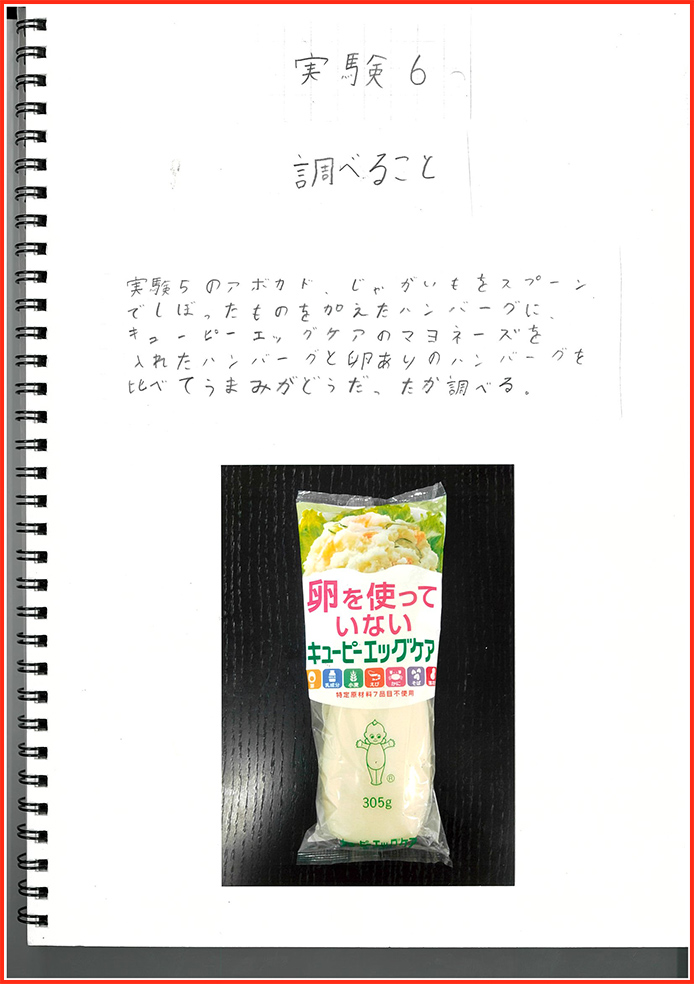 実験6
調べること
実験5のアボカド、じゃがいもをスプーン
でしぼったものを加えたハンバーグに、
キューピーエッグケアのマヨネーズを
入れたハンバーグと卵ありのハンバーグを
比べてうまみがどうだ、たか調べる。
卵を使って
いない
キューピーエッグケア
乳成分 小麦 えび かに そば
特定原材料7品目不使用
®
305g
キューピーエッグケア